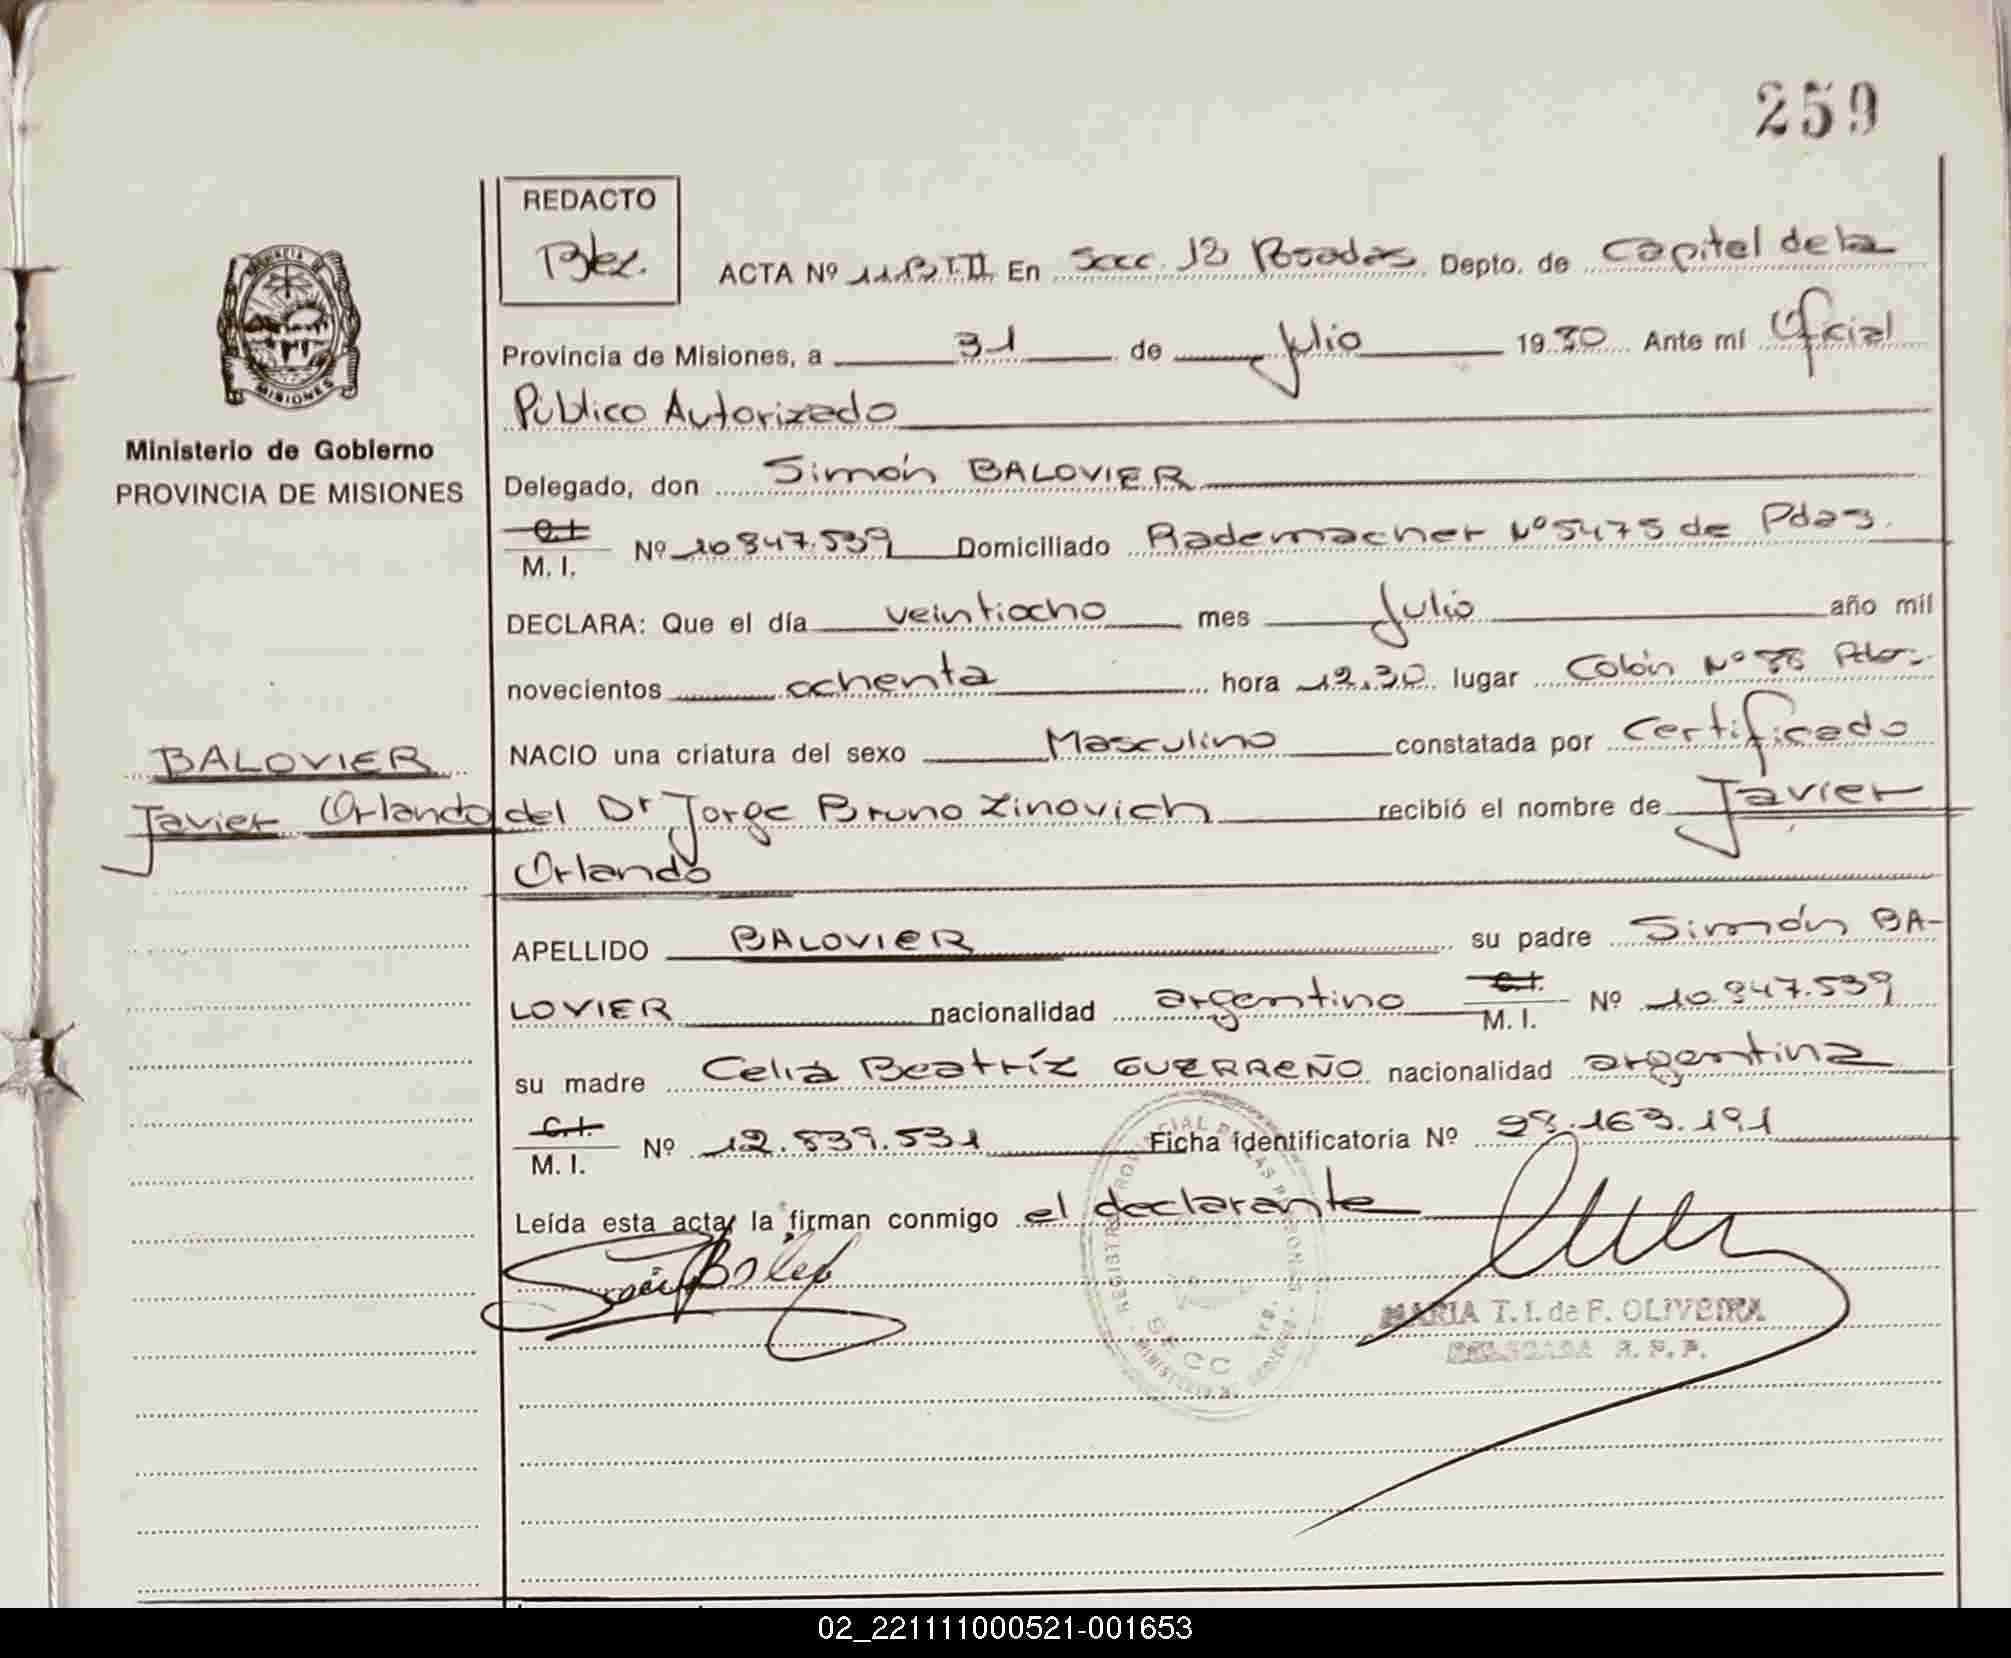 259
REDACTO
ACTA Nº En Secc. 1B Posadas Depto. de Capital de la
Provincia de Misiones, a 31 de Julio 1980 Ante mí Oficial
Público Autorizado
Ministerio de Gobierno
PROVINCIA DE MISIONES
Delegado, don Simón BALOVIER
C.I.
M. I. Nº 10.847.539 Domiciliado Rademacher Nº 5475 de Pdas.
DECLARA: Que el día veintiocho mes Julio año mil
novecientos ochenta hora 12.30 lugar Colón Nº Pdas.
NACIO una criatura del sexo Masculino constatada por Certificado
BALOVIER
Javier Orlando
del Dr Jorge Bruno Zinovich recibió el nombre de Javier
Orlando
APELLIDO BALOVIER su padre Simón BA-
LOVIER nacionalidad argentino C.I. M. I. Nº 10.847.539
su madre Celia Beatríz GUERREÑO nacionalidad argentina
C.I.
M. I. Nº 12.839.531 Ficha identificatoria Nº 28.163.191
Leída esta acta, la firman conmigo el declarante
MARIA T. I. de F. OLIVEIRA
DELEGADA R. P. P.
02_221111000521-001653